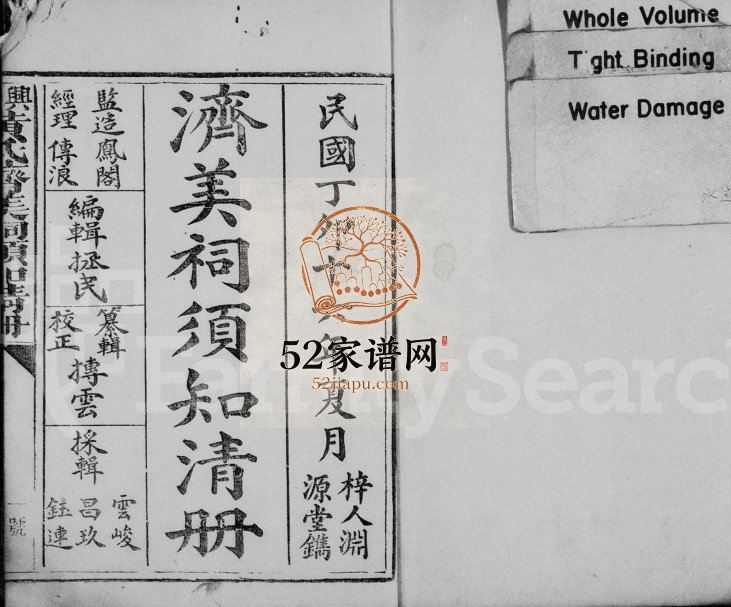 Whole Volume
T ght Binding
Water Damage
民國丁卯十六年夏月
梓人淵
源堂鐫
濟美祠須知清册
監造鳳閣
經理傳浪
編輯拯民
纂輯
校正
摶雲
採輯
雲峻
昌玖
鈺連
興黃氏濟美祠須知清册
號
52家谱网
52jiapu.com
FamilySearch